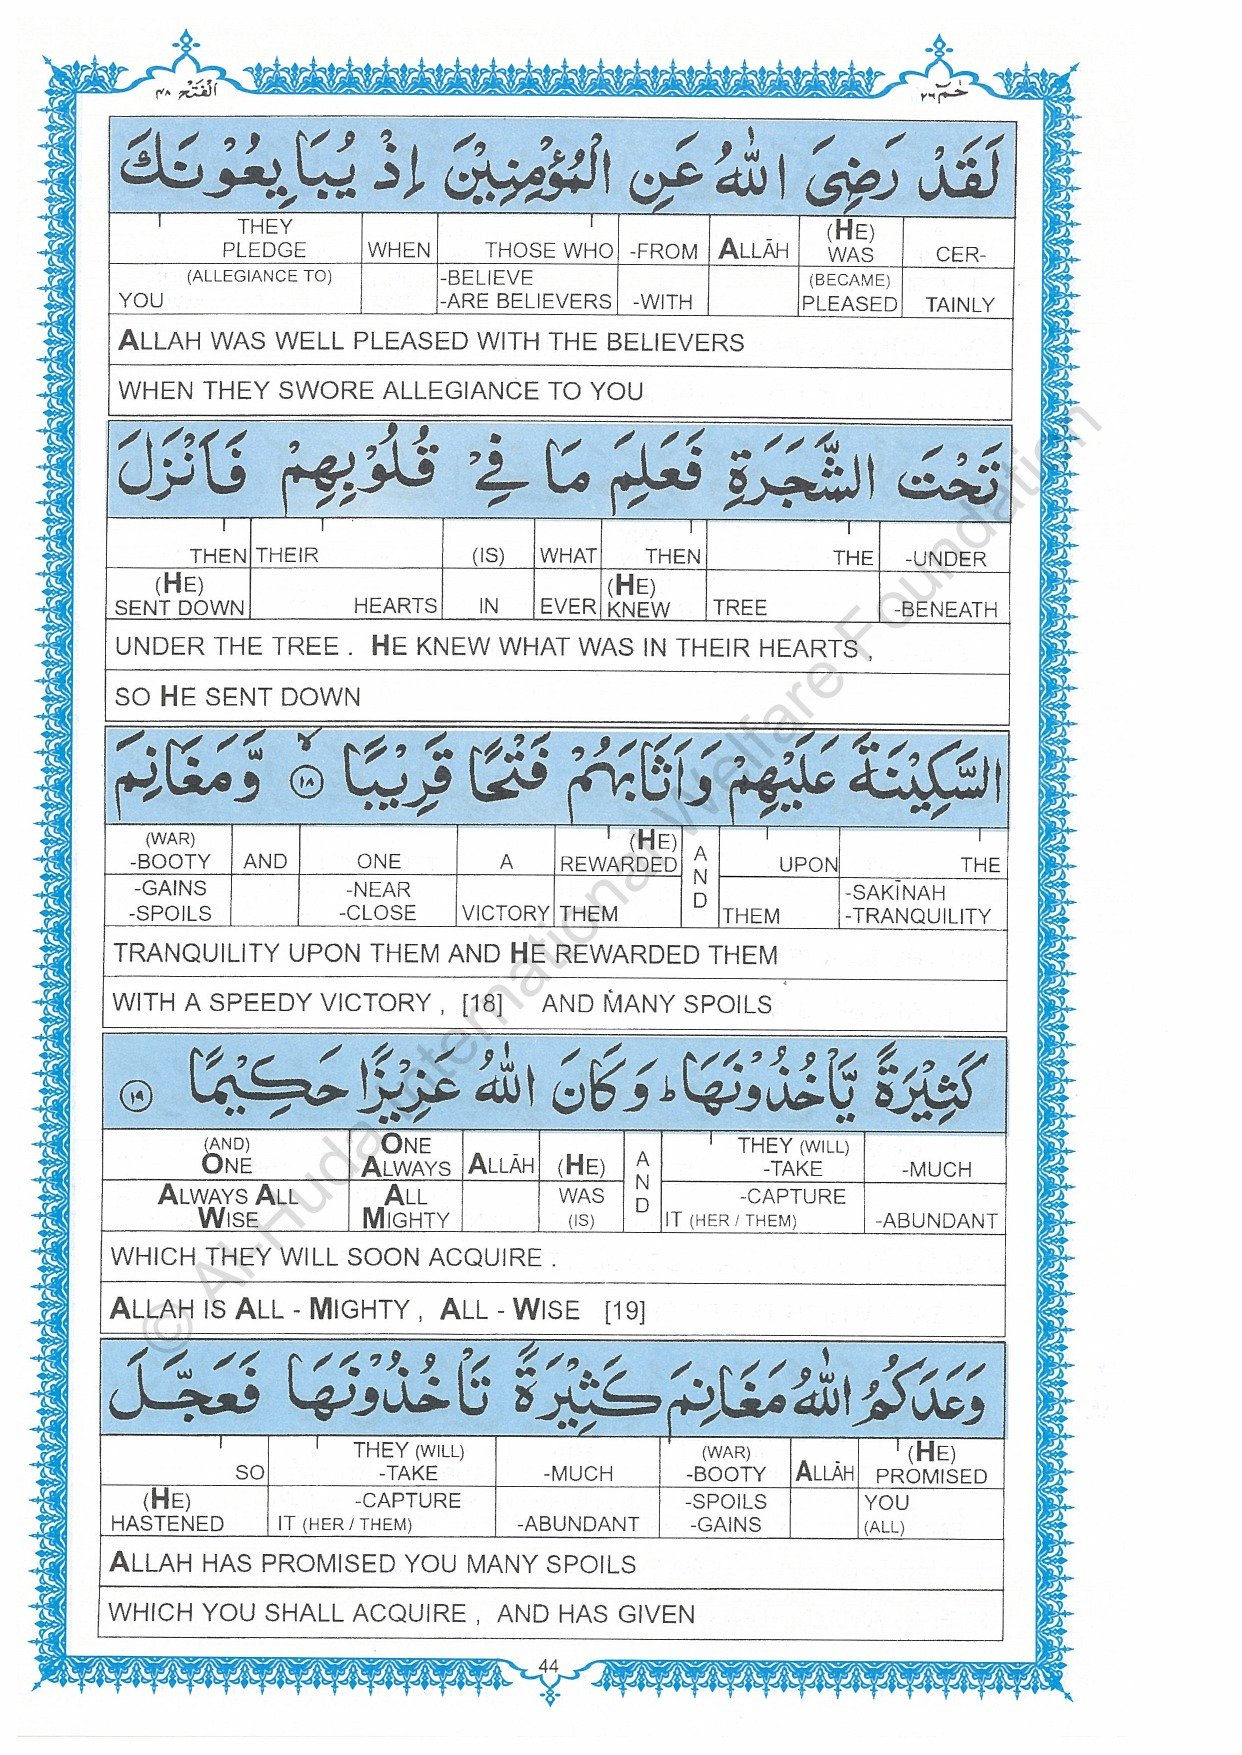 الْفَتْح ٤٨
حٰمٓ ٢٦
لَقَدْ رَضِیَ اللّٰهُ عَنِ الْمُؤْمِنِیْنَ اِذْ یُبَایِعُوْنَكَ
THEY WHEN THOSE WHO -FROM ALLĀH (HE) CER-
PLEDGE WAS
(ALLEGIANCE TO) -BELIEVE -WITH (BECAME) TAINLY
YOU -ARE BELIEVERS PLEASED
ALLAH WAS WELL PLEASED WITH THE BELIEVERS
WHEN THEY SWORE ALLEGIANCE TO YOU
تَحْتَ الشَّجَرَةِ فَعَلِمَ مَا فِیْ قُلُوْبِهِمْ فَاَنْزَلَ
THEN THEIR (IS) WHAT THEN THE -UNDER
(HE) (HE)
SENT DOWN HEARTS IN EVER KNEW TREE -BENEATH
UNDER THE TREE . HE KNEW WHAT WAS IN THEIR HEARTS ,
SO HE SENT DOWN
السَّكِیْنَةَ عَلَیْهِمْ وَاَثَابَهُمْ فَتْحًا قَرِیْبًا ۙ ١٨ وَّمَغَانِمَ
(WAR) (HE)
-BOOTY AND ONE A REWARDED AND UPON THE
-GAINS -NEAR -SAKĪNAH
-SPOILS -CLOSE VICTORY THEM THEM -TRANQUILITY
TRANQUILITY UPON THEM AND HE REWARDED THEM
WITH A SPEEDY VICTORY , [18] AND MANY SPOILS
كَثِیْرَةً یَّاْخُذُوْنَهَا ؕ وَكَانَ اللّٰهُ عَزِیْزًا حَكِیْمًا ١٩
(AND) ONE ALLĀH (HE) AND THEY (WILL) -MUCH
ONE ALWAYS -TAKE
ALWAYS ALL ALL WAS -CAPTURE
WISE MIGHTY (IS) IT (HER / THEM) -ABUNDANT
WHICH THEY WILL SOON ACQUIRE .
ALLAH IS ALL - MIGHTY , ALL - WISE [19]
وَعَدَكُمُ اللّٰهُ مَغَانِمَ كَثِیْرَةً تَاْخُذُوْنَهَا فَعَجَّلَ
THEY (WILL) (WAR) (HE)
SO -TAKE -MUCH -BOOTY ALLĀH PROMISED
(HE) -CAPTURE -SPOILS YOU
HASTENED IT (HER / THEM) -ABUNDANT -GAINS (ALL)
ALLAH HAS PROMISED YOU MANY SPOILS
WHICH YOU SHALL ACQUIRE , AND HAS GIVEN
44
© Al-Huda International Welfare Foundation